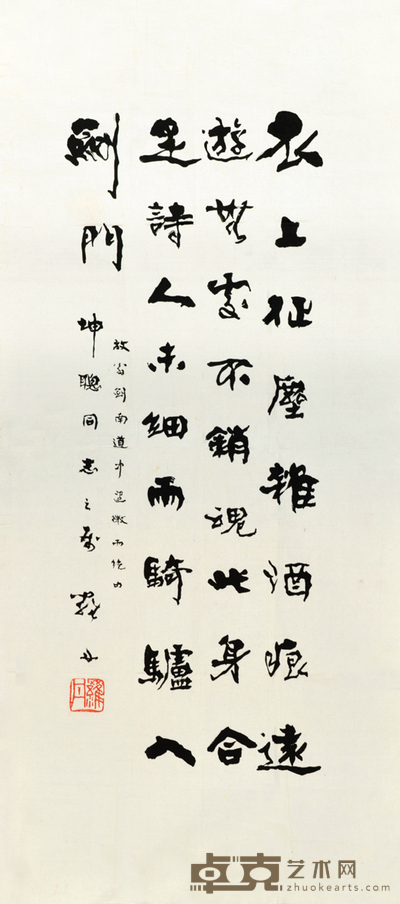 衣上征塵雜酒痕遠
遊無處不銷魂此身合
是詩人未細雨騎驢入
劍門
放翁劍南道中遇微雨絕句
坤聰同志之屬 羅丹
羅丹
卓克艺术网
zhuokearts.com